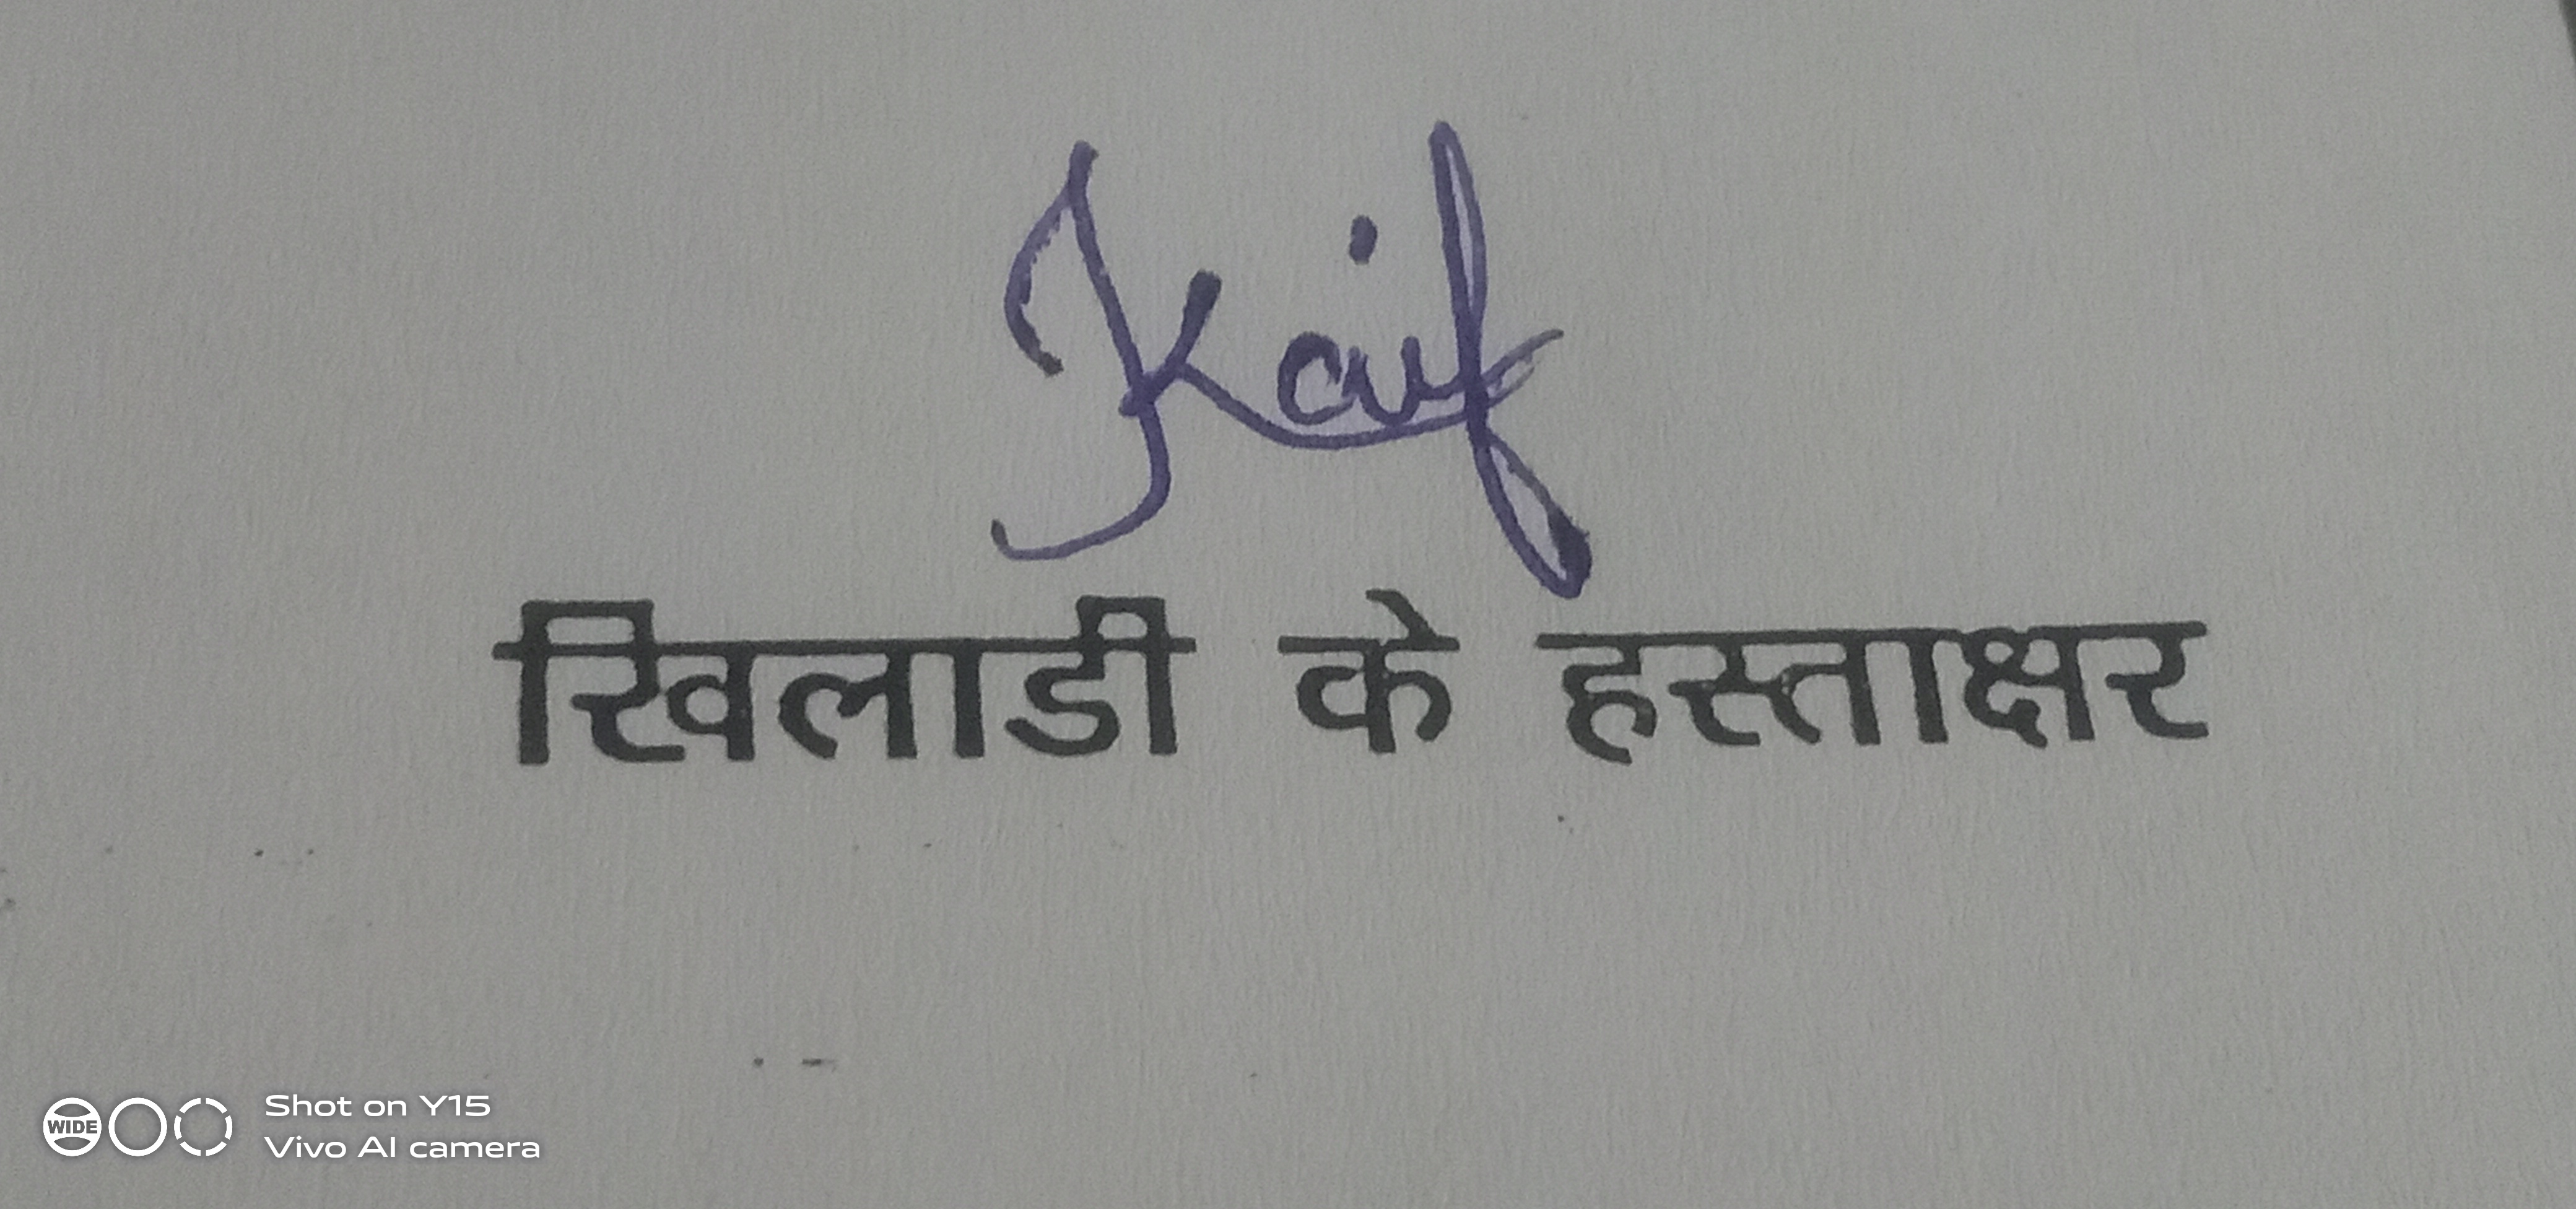 Kaif
खिलाडी के हस्ताक्षर
WIDE
Shot on Y15
Vivo AI camera